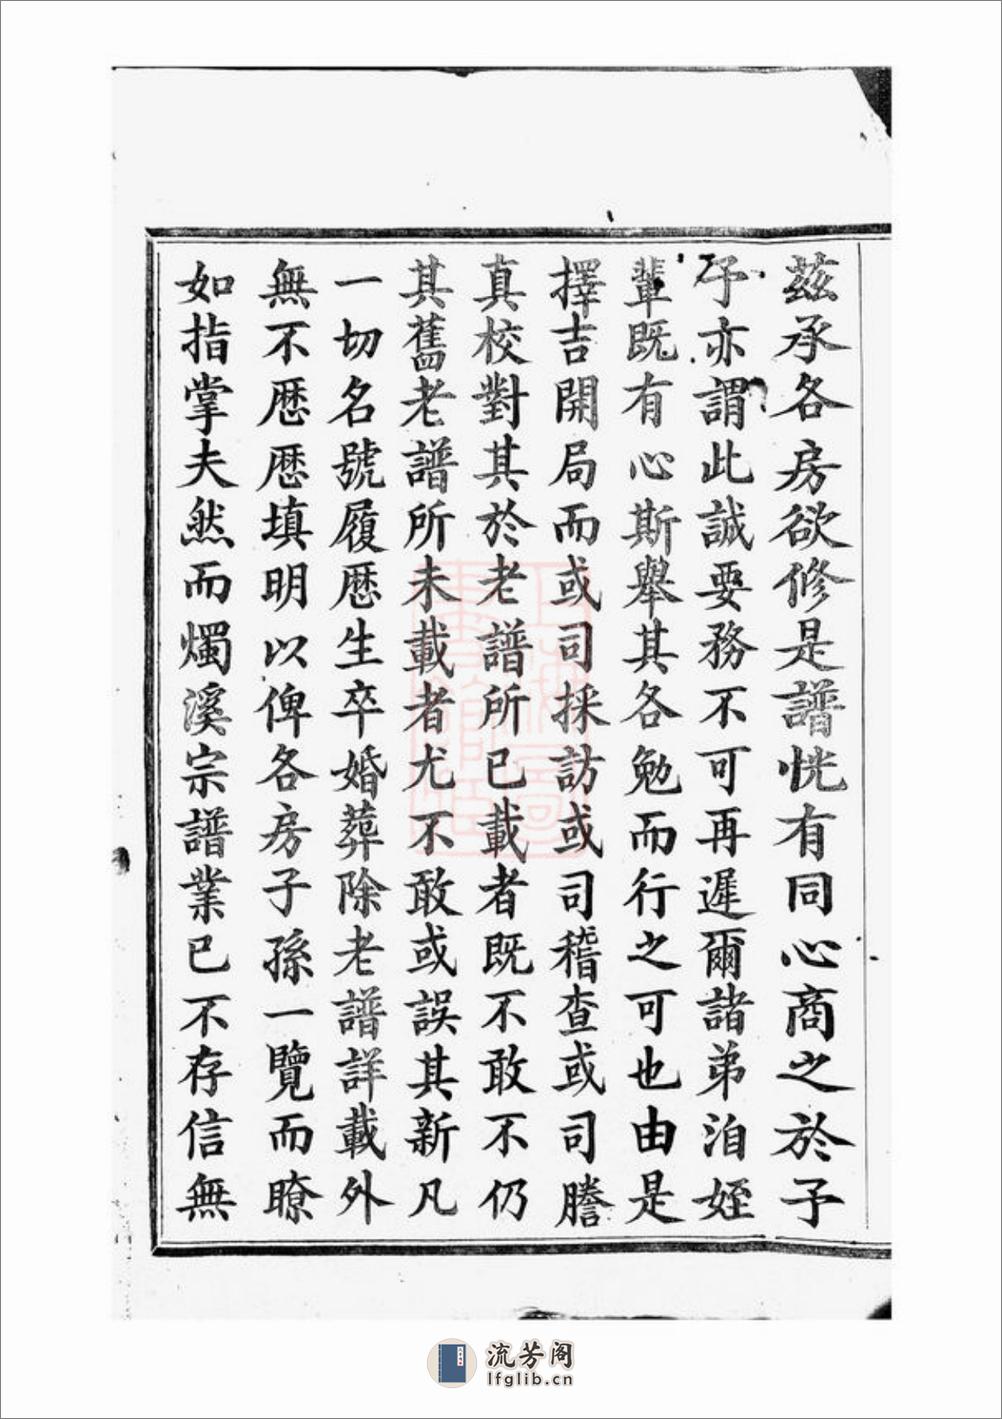 茲承各房欲修是譜恍有同心商之於予
予亦謂此誠要務不可再遲爾諸弟洎姪
輩既有心斯舉其各勉而行之可也由是
擇吉開局而或司採訪或司稽查或司謄
真校對其於老譜所已載者既不敢不仍
其舊老譜所未載者尤不敢或誤其新凡
一切名號履歷生卒婚葬除老譜詳載外
無不歷歷填明以俾各房子孫一覽而瞭
如指掌夫然而燭溪宗譜業已不存信無
流芳阁
lfglib.cn